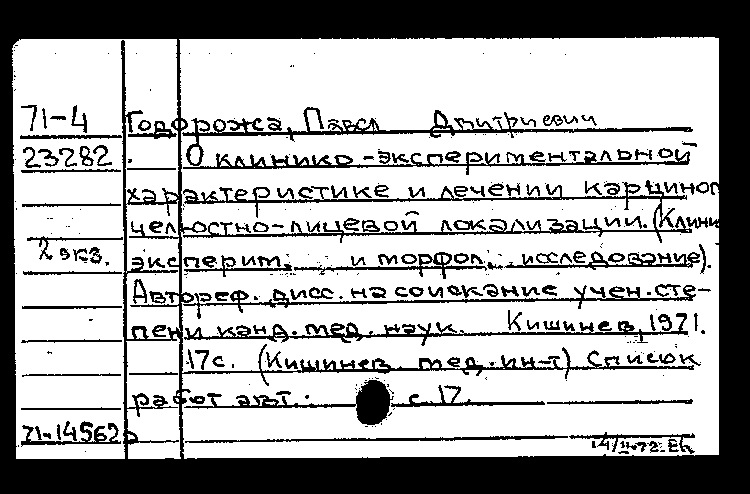 71-4 Годорожа, Павел Дмитриевич
23282. О клинико-экспериментальной
характеристике и лечении карцином
челюстно-лицевой локализации. (Клини
2 экз. эксперим. и морфол. исследование).
Автореф. дисс. на соискание учен. сте-
пени канд. мед. наук. Кишинев, 1971.
17с. (Кишинев. мед. ин-т) Список
работ авт.: с. 17.
71-14562